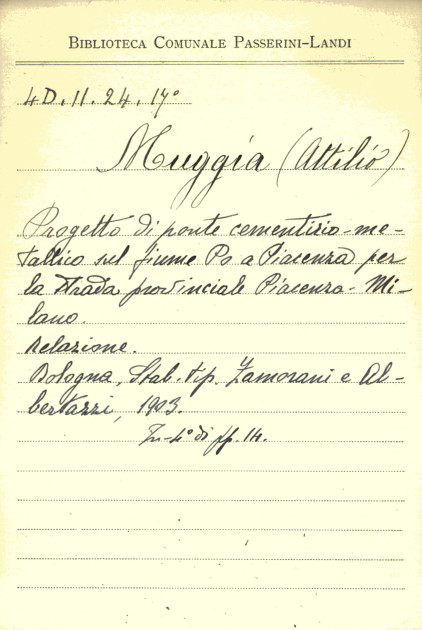 BIBLIOTECA COMUNALE PASSERINI-LANDI
4D.11.24.17°
Muggia (Attilio)
Progetto di ponte cementizio-me-
tallico sul fiume Po a Piacenza per
la strada provinciale Piacenza-Mi-
lano.
Relazione.
Bologna, Stab. tip. Zamorani e Al-
bertazzi, 1903.
In-4° di pp. 14.